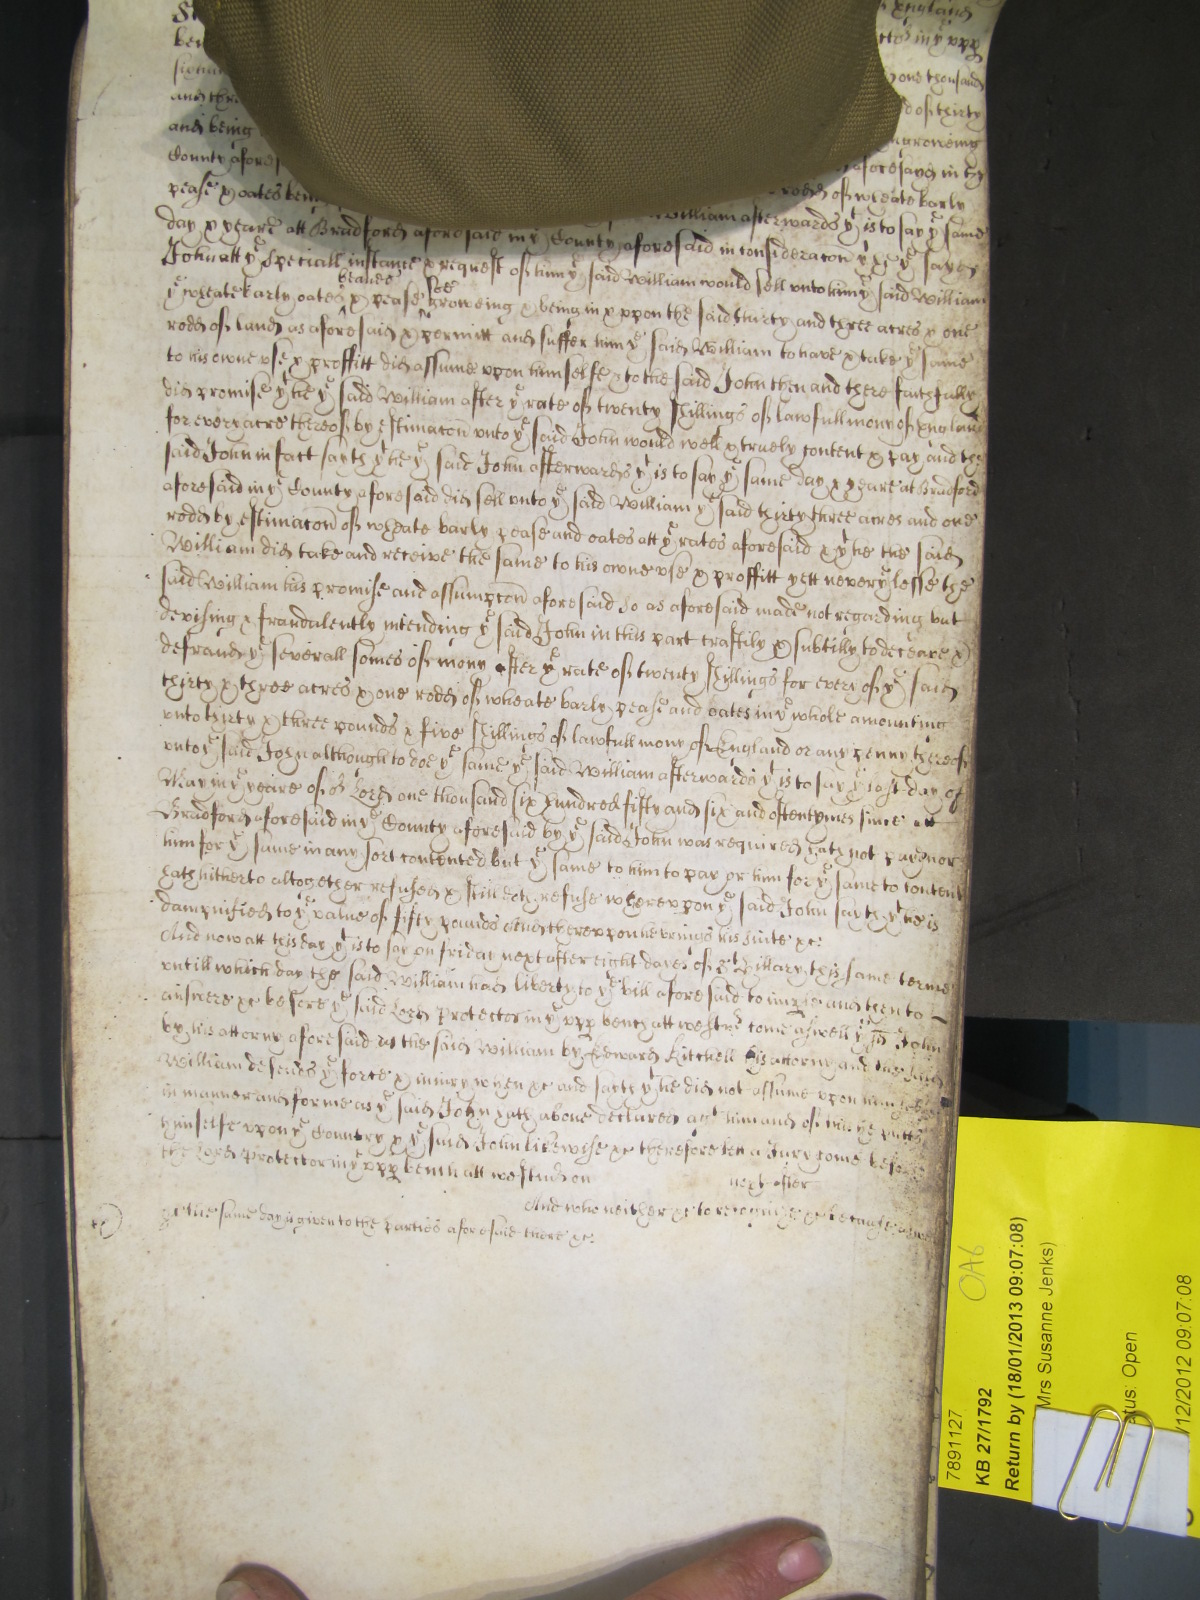 England
bei
one thousand
and thre d of thirty
and being groweing
County afores aforesayd in the
pease & oates being rodd of wheate barly
day & yeare att Bradford aforesaid in yͤ County aforesaid in consideracon yᵗ hee yͤ sayd William afterwards yᵗ is to say yͤ same
John att yͤ speciall instance & request of him yͤ said William would sell unto him yͤ said William
beanes
yͤ wheate barly oates & pease soe groweing & being in & uppon the said thirty and three acres & one
rodd of land as aforesaid & permitt and suffer him yͤ said William to have & take yͤ same
to his owne use & proffitt did assume upon himselfe & to the said John then and there faithfully
did promise yᵗ he yͤ said William after yͤ rate of twenty shillings of lawfull mony of England
for every acre thereof by estimacon unto yͤ said John would well & truely content & pay and the
said John in fact sayth yᵗ he yͤ said John afterwards yᵗ is to say yͤ same day & yeare at Bradford
aforesaid in yͤ County aforesaid did sell unto yͤ said William yͤ said thirty three acres and one
rodd by estimacon of wheate barly pease and oates att yͤ rates aforesaid & yᵗ he the said
William did take and receive the same to his owne use & proffitt yett neverylesse the
said William his promise and assumpcon aforesaid so as aforesaid made not regarding but
devising & fraudalently intending yͤ said John in this part craftily & subtilly to deceave &
defraud yͤ severall somes of mony after yͤ rate of twenty shillings for every of yͤ said
thirty & three acres & one rodd of wheate barly pease and oates in yͤ whole amounting
unto thirty & three pounds & five shillings of lawfull mony of England or any penny thereof
unto yͤ said John although to doe yͤ same yͤ said William afterwards yᵗ is to say yͤ last day of
May in yͤ yeare of oʳ Lord one thousand six hundred fifty and six and oftentymes since att
Bradford aforesaid in yͤ County aforesaid by yͤ said John was required hath not payd nor
him for yͤ same in any sort contented but yͤ same to him to pay or him for yͤ same to content
hath hitherto altogether refused & still doth refuse whereuppon yͤ said John sayth yᵗ he is
dampnified to yͤ value of fifty pounds And thereuppon he brings his suite &c:
And now att this day yᵗ is to say on Friday next after eight dayes of Sᵗ Hillary this same terme
untill which day the said William had liberty to yͤ bill aforesaid to imple and then to
answere &c before yͤ said Lord Protector in yͤ upp bench att Westmʳ come aswell yͤ sd John
by his attorny aforesaid as the said William by Edward Kitchell his attorny and the said
William defends yͤ force & iniury when &c and sayth yᵗ he did not assume upon himselfe
in manner and forme as yͤ said John hath above declared agᵗ him and of this he putts
himselfe upon yͤ Country & yͤ said John likewise &c therefore lett a Jury come before
the Lord Protector in yͤ upp bench att Westmʳ on next after
And who neither &c to recognize &c because aswell
&c the same day is given to the parties aforesaid there &c:
7891127
OA6
KB 27/1792
Return by (18/01/2013 09:07:08)
Mrs Susanne Jenks)
tus: Open
/12/2012 09:07:08